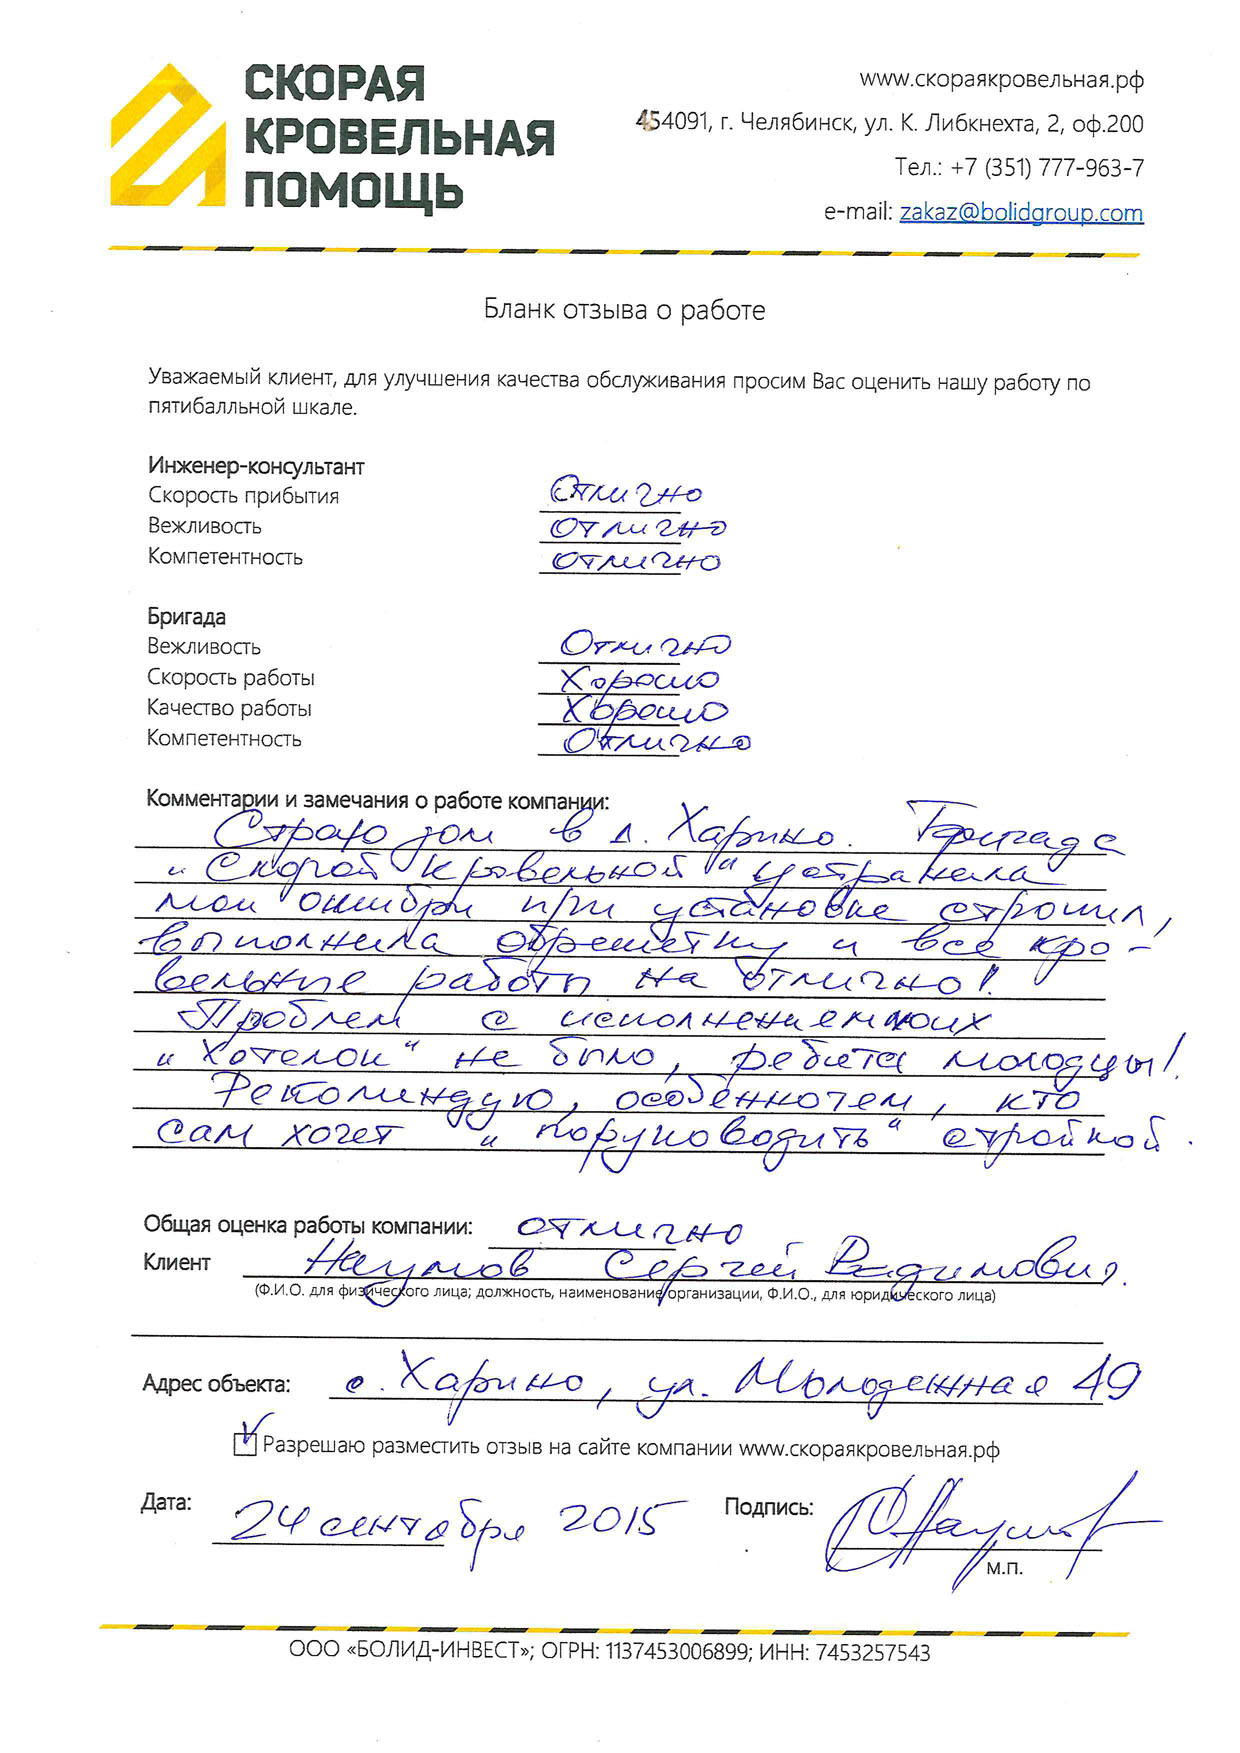 СКОРАЯ
КРОВЕЛЬНАЯ
ПОМОЩЬ
www.скораякровельная.рф
454091, г. Челябинск, ул. К. Либкнехта, 2, оф.200
Тел.: +7 (351) 777-963-7
e-mail: zakaz@bolidgroup.com
Бланк отзыва о работе
Уважаемый клиент, для улучшения качества обслуживания просим Вас оценить нашу работу по
пятибалльной шкале.
Инженер-консультант
Скорость прибытия Отлично
Вежливость отлично
Компетентность отлично
Бригада
Вежливость Отлично
Скорость работы Хорошо
Качество работы Хорошо
Компетентность Отлично
Комментарии и замечания о работе компании:
Строю дом в д. Харино. Бригада
"Скорой кровельной" устранила
мои ошибки при установке стропил,
выполнила обрешетку и все кро-
вельные работы на отлично!
Проблем с исполнением моих
"Хотелок" не было, ребята молодцы!
Рекомендую, особенно тем, кто
сам хочет "поруководить" стройкой.
Общая оценка работы компании: отлично
Клиент Наумов Сергей Вадимович.
(Ф.И.О. для физического лица; должность, наименование организации, Ф.И.О., для юридического лица)
Адрес объекта: с. Харино, ул. Молодежная 49
Разрешаю разместить отзыв на сайте компании www.скораякровельная.рф
Дата: 24 сентября 2015 Подпись:
М.П.
ООО «БОЛИД-ИНВЕСТ»; ОГРН: 1137453006899; ИНН: 7453257543